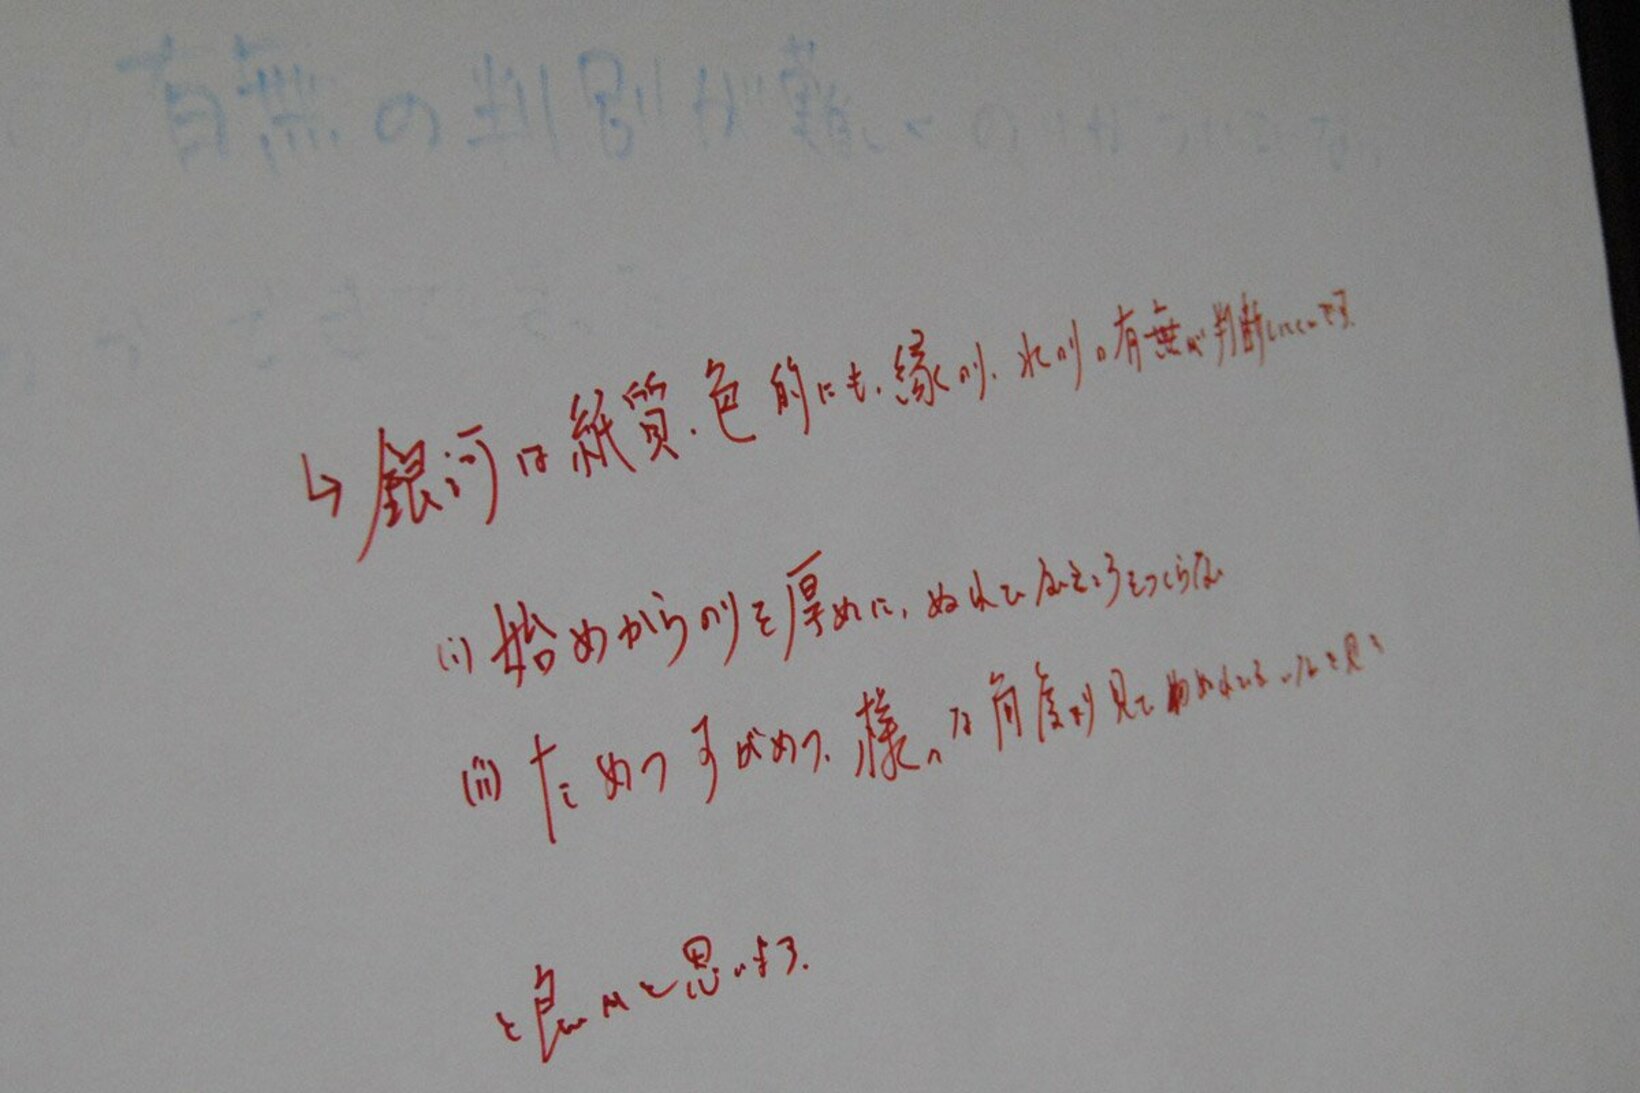 有無の判別が難しいの
↳銀河は紙質、色的にも、縁のり、水のりの有無が判断しにくいです。
(i) 始めからのりを厚めに、ぬれてないところをつくらない
(ii) ためつすがめつ、様々な角度より見てぬれているかを見る
と良いと思います。